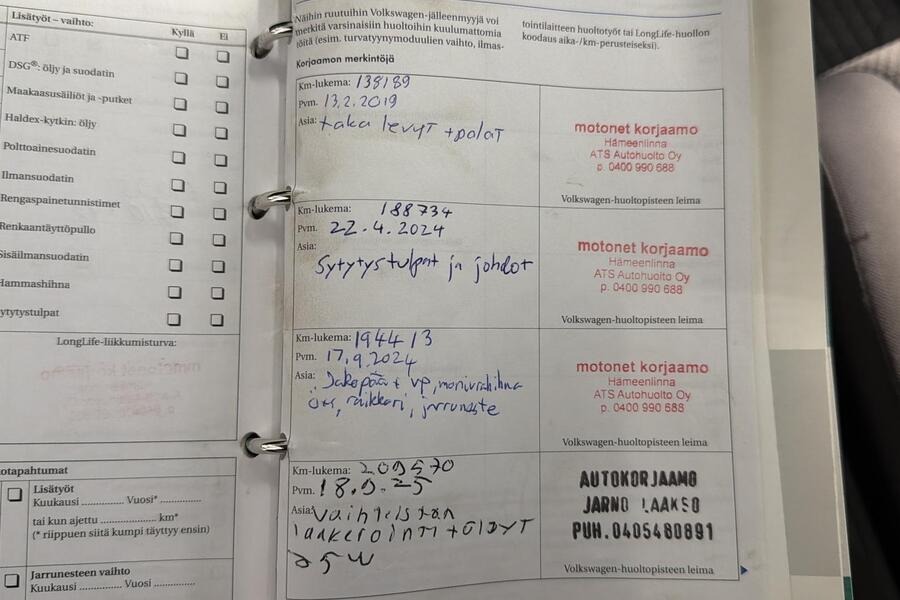 Lisätyöt – vaihto:
Kyllä
Ei
ATF
DSG®: öljy ja suodatin
Maakaasusäiliöt ja -putket
Haldex-kytkin: öljy
Polttoainesuodatin
Ilmansuodatin
Rengaspainetunnistimet
Renkaantäyttöpullo
Sisäilmansuodatin
Hammashihna
ytytystulpat
LongLife-liikkumisturva:
otapahtumat
Lisätyöt
Kuukausi .............. Vuosi* ..............
tai kun ajettu ................... km*
(* riippuen siitä kumpi täyttyy ensin)
Jarrunesteen vaihto
Kuukausi .............. Vuosi ..............
Näihin ruutuihin Volkswagen-jälleenmyyjä voi
merkitä varsinaisiin huoltoihin kuulumattomia
töitä (esim. turvatyynymoduulien vaihto, ilmas-
tointilaitteen huoltotyöt tai LongLife-huollon
koodaus aika-/km-perusteiseksi).
Korjaamon merkintöjä
Km-lukema: 138189
Pvm. 13.2.2019
Asia: taka levyt + palat
motonet korjaamo
Hämeenlinna
ATS Autohuolto Oy
p. 0400 990 688
Volkswagen-huoltopisteen leima
Km-lukema: 188734
Pvm. 22.4.2024
Asia:
Sytytystulpat ja johdot
motonet korjaamo
Hämeenlinna
ATS Autohuolto Oy
p. 0400 990 688
Volkswagen-huoltopisteen leima
Km-lukema: 194413
Pvm. 17.9.2024
Asia: Jakopää + vp, moniurahihna
raikkari, jarruneste
motonet korjaamo
Hämeenlinna
ATS Autohuolto Oy
p. 0400 990 688
Volkswagen-huoltopisteen leima
Km-lukema: 209570
Pvm. 18.9.25
Asia: Vaihteistan
laakerointi + ölJyT
75W
AUTOKORJAAMO
JARNO LAAKSO
PUH.0405480891
Volkswagen-huoltopisteen leima